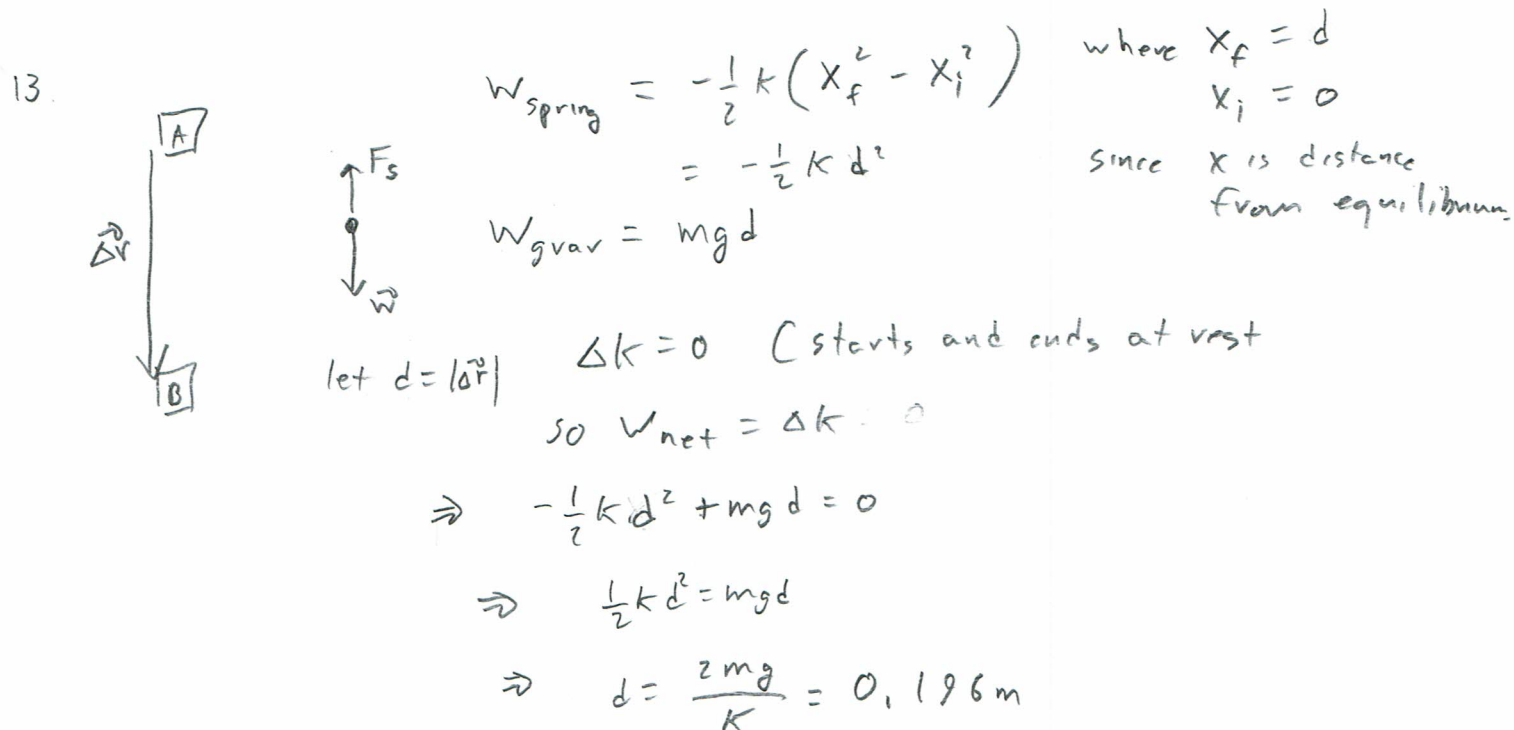 13.
A
Δr⃗
B
F_s
w⃗
let d = |Δr⃗|
W_spring = -½ k (x_f² - x_i²)
where x_f = d
x_i = 0
= -½ k d²
since x is distance
from equilibrium.
W_grav = mgd
Δk = 0 (starts and ends at rest
so W_net = Δk = 0
⇒ -½ k d² + mgd = 0
⇒ ½ k d² = mgd
⇒ d = 2mg/k = 0.196m